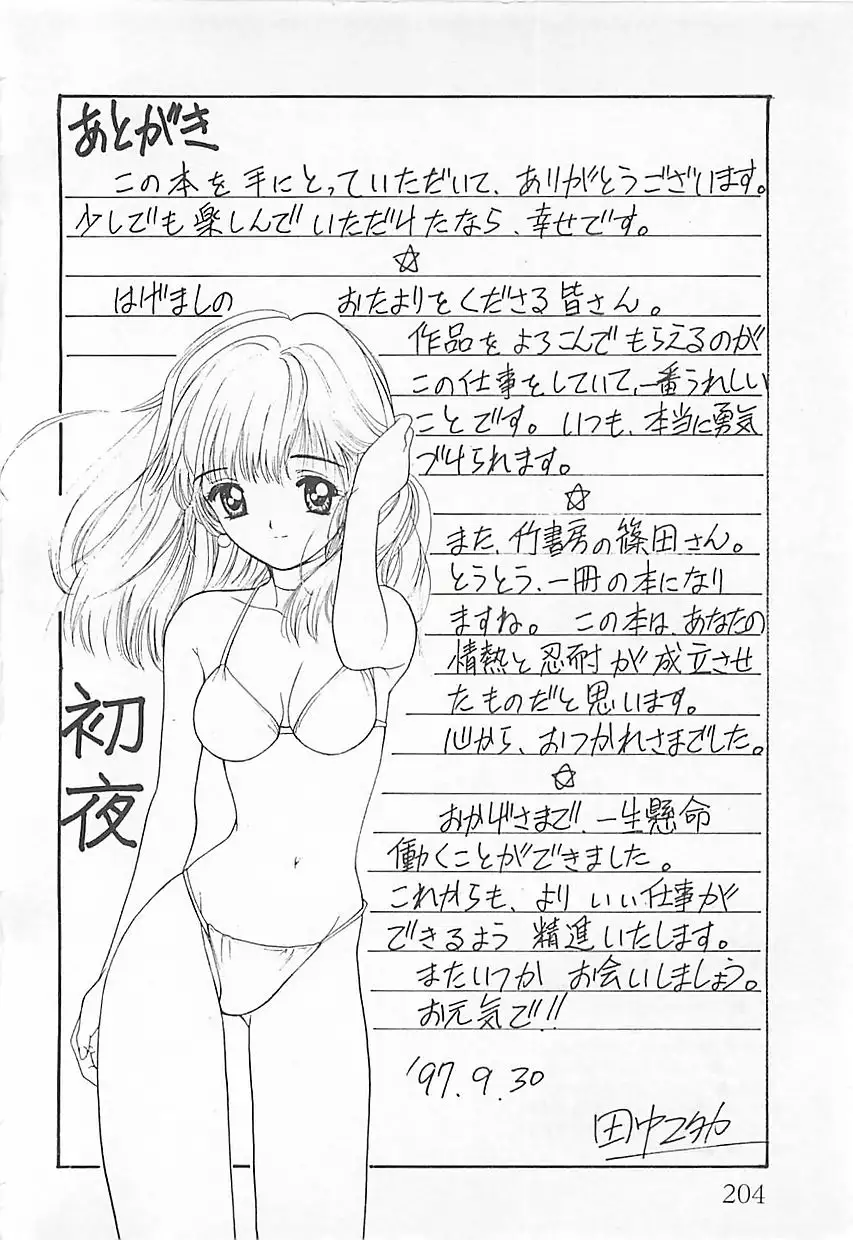 あとがき
この本を手にとっていただいて、ありがとうございます。
少しでも楽しんでいただけたなら、幸せです。
☆
はげましの おたよりをくださる皆さん。
作品をよろこんでもらえるのが
この仕事をしていて、一番うれしい
ことです。いつも、本当に勇気
づけられます。
☆
また、竹書房の篠田さん。
とうとう、一冊の本になり
ますね。この本は、あなたの
情熱と忍耐が成立させ
たものだと思います。
心から、おつかれさまでした。
☆
おかげさまで、一生懸命
働くことができました。
これからも、よりいい仕事が
できるよう精進いたします。
またいつか お会いしましょう。
お元気で!!
'97.9.30
田中ユタカ
初夜
204